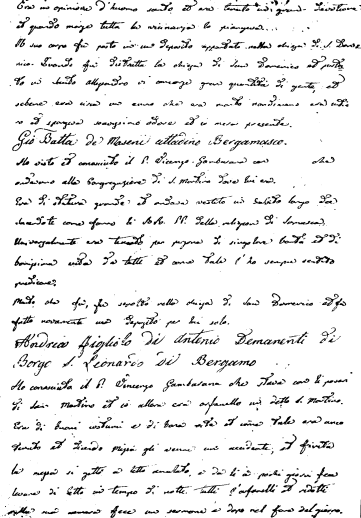 Era in opinione d'huomo santo et era tenuto di gran
et quando morse tutta la vicinanza lo piangeva
Il suo corpo fu posto in un deposito appartato nella chiesa di S. Dome
nico. Quando fu distrutta la chiesa di San Domenico et
to in Santo Alessandro vi concorse gran quantità di gente, et
sebene era circa un anno che era morto nondimeno era
et io ero presente.
Gio Batta de Maseni cittadino Bergamasco.
Ho visto et conosciuto il P. Vicenzo Gambarana con che
andavamo alla Congregatione di S. Martino dove lui era.
Era di statura grande et andava vestito in habito longo da
sacerdote come fanno li RR. PP. della religion di Somasca.
Universalmente era tenuto per persona di singolar bontà et di
bonissima vita da tutti et come tale l'ho sempre sentito
predicare.
Morto che fu, fu sepolto nella chiesa di San Domenico et fu
fatto novamente un deposito per lui solo.
Andrea figliolo di Antonio Demanenti di
Borgo S. Leonardo di Bergamo
Ho conosciuto il P. Vincenzo Gambarana che stava con li poveri
di San Martino et io allora era orfanello in detto S. Martino.
Era di buoni costumi et di bona vita et come tale era anco
tenuto et dicendo Messa gli venne un accidente, et finita
la messa si gettò a letto amalato, e de lì a pochi giorni fece
levare di letto in tempo di notte tutti l'orfanelli et ridotti
nella sua camera fece un sermone et dopo nel fare del giorno.